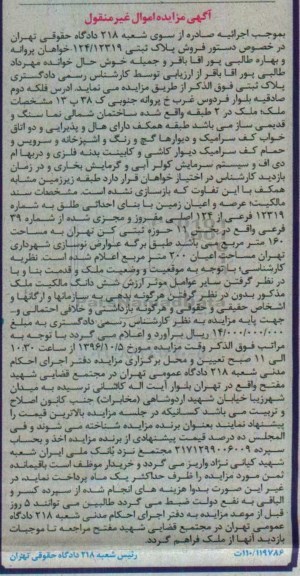 آگهی مزایده اموال غیر منقول
بموجب اجرائیه صادره از سوی شعبه ۲۱۸ دادگاه حقوقی تهران
در خصوص دستور فروش پلاک ثبتی ۱۲۴/۱۲۳۱۹ خواهان پروانه
و بهاره طالبی پور اقا باقر و جمیله خوش حال خوانده مهرداد
طالبی پور اقا باقر از ارزیابی توسط کارشناس رسمی دادگستری
پلاک ثبتی فوق الذکر از طریق مزایده می نماید. ادرس فلکه دوم
صادقیه بلوار فردوس غرب خ پروانه جنوبی ک ۳۸ پ ۱۳ مشخصات
ملک: ملک در ۲ طبقه واقع شده ساختمان شمالی نما سنگ و
قدیمی ساز می باشد طبقه همکف دارای هال و پذیرایی و دو اتاق
خواب کف سرامیک و دیوارها گچ و رنگ و اشپزخانه و سرویس و
حمام کف سرامیک دیوار کاشی و کابینت بدنه فلزی و دربها ام
دی اف و سیستم سرمایش کولر ابی و گرمایش بخاری و در زمان
بازدید کارشناس در اختیار خواهان قرار دارد طبقه زیرزمین مشابه
همکف با این تفاوت که بازسازی نشده است. مشخصات سند
مالکیت: عرصه و اعیان زمین با بنای احداثی طلق به شماره
۱۲۳۱۹ فرعی از ۱۲۴ اصلی مفروز و مجزی شده از شماره ۳۹
فرعی واقع در بخش ۱۱ حوزه ثبتی کن تهران به مساحت
۱۶۰ متر مربع می باشد طبق برگه عوارض نوسازی شهرداری
تهران مساحت اعیان ۲۰۰ متر مربع اعلام شده است. نظریه
کارشناسی: با توجه به موقعیت و وضعیت ملک و قدمت بنا و با
در نظر گرفتن سایر عوامل موثر ارزش شش دانگ مالکیت ملک
مذکور بدون در نظر گرفتن هرگونه بدهی به سازمانها و ارگانها و
اشخاص حقیقی و حقوقی و هرگونه بازداشتی و خلافی احتمالی و
جهت پایه مزایده به نظر کارشناس رسمی دادگستری به مبلغ
۱۴/۰۰۰/۰۰۰/۰۰۰ ریال برآورد و اعلام می گردد با توجه به
مراتب فوق الذکر وقت مزایده مورخ ۱۳۹۶/۱۰/۵ از ساعت ۱۰:۳۰
الی ۱۱ صبح تعیین و محل برگزاری مزایده دفتر اجرای احکام
مدنی شعبه ۲۱۸ دادگاه عمومی تهران در مجتمع قضایی شهید
مفتح واقع در تهران بلوار آیت اله کاشانی نرسیده به میدان
شهرزیبا خیابان شهید اردوشاهی (مخابرات) جنب کانون اصلاح
و تربیت می باشد کسانیکه در جلسه مزایده بالاترین قیمت را
پیشنهاد نمایند بعنوان برنده مزایده شناخته می شوند و فی
المجلس ده درصد قیمت پیشنهادی از برنده مزایده اخذ و بحساب
سپرده ۲۱۷۱۲۹۹۰۰۶۰۰۹ مجتمع نزد بانک ملی ایران شعبه
شهید کیانی نژاد واریز می گردد و خریدار موظف است باقیمانده
ثمن مورد مزایده را ظرف حداکثر یک ماه پرداخت نماید، در
غیر این صورت بدوا هزینه های انجام شده از سپرده کسر و
الباقی به نفع دولت ضبط می گردد طالبین می توانند ۵ روز
قبل از موعد مزایده به دفتر اجرای احکام مدنی شعبه ۲۱۸ دادگاه
عمومی تهران در مجتمع قضایی شهید مفتح مراجعه تا موجبات
بازدید آنها از ملک فراهم گردد.
۱۱۰/۱۱۹۷۸۶/ت رئیس شعبه ۲۱۸ دادگاه حقوقی تهران